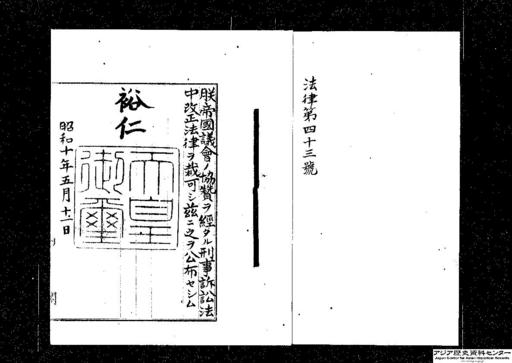 法律第四十三號
朕帝國議會ノ協贊ヲ經タル刑事訴訟法
中改正法律ヲ裁可シ茲ニ之ヲ公布セシム
裕仁
天皇
御璽
昭和十年五月十一日
アジア歴史資料センター
Japan Center for Asian Historical Records